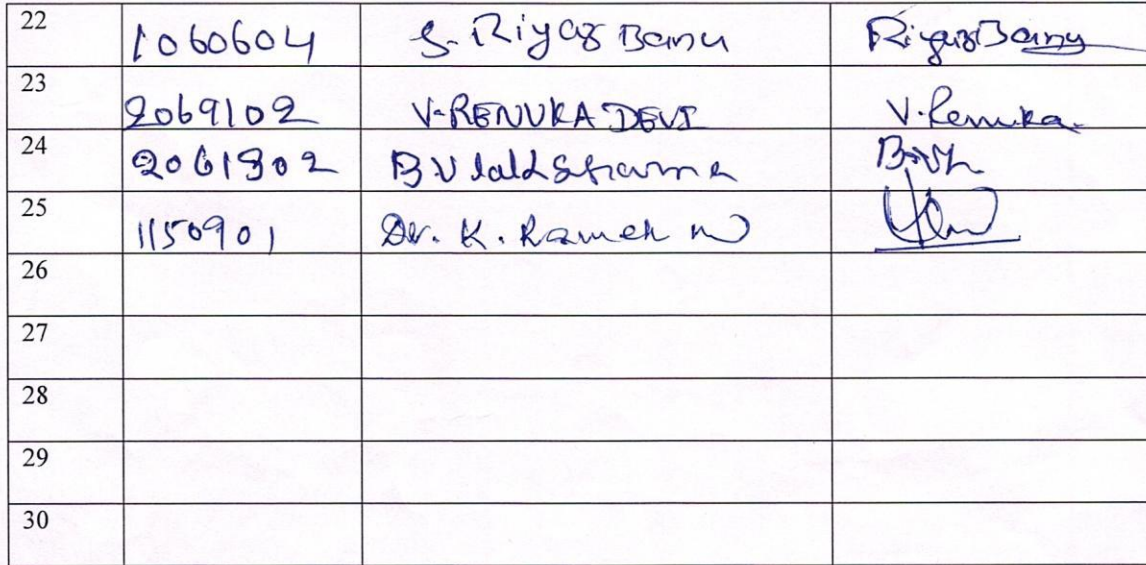 22 1060604 S. Riyaz Banu Riyaz Banu
23 2069102 V. RENUKA DEVI V. Renuka.
24 2061302 B V
25 1150901 Dr. K.
26
27
28
29
30